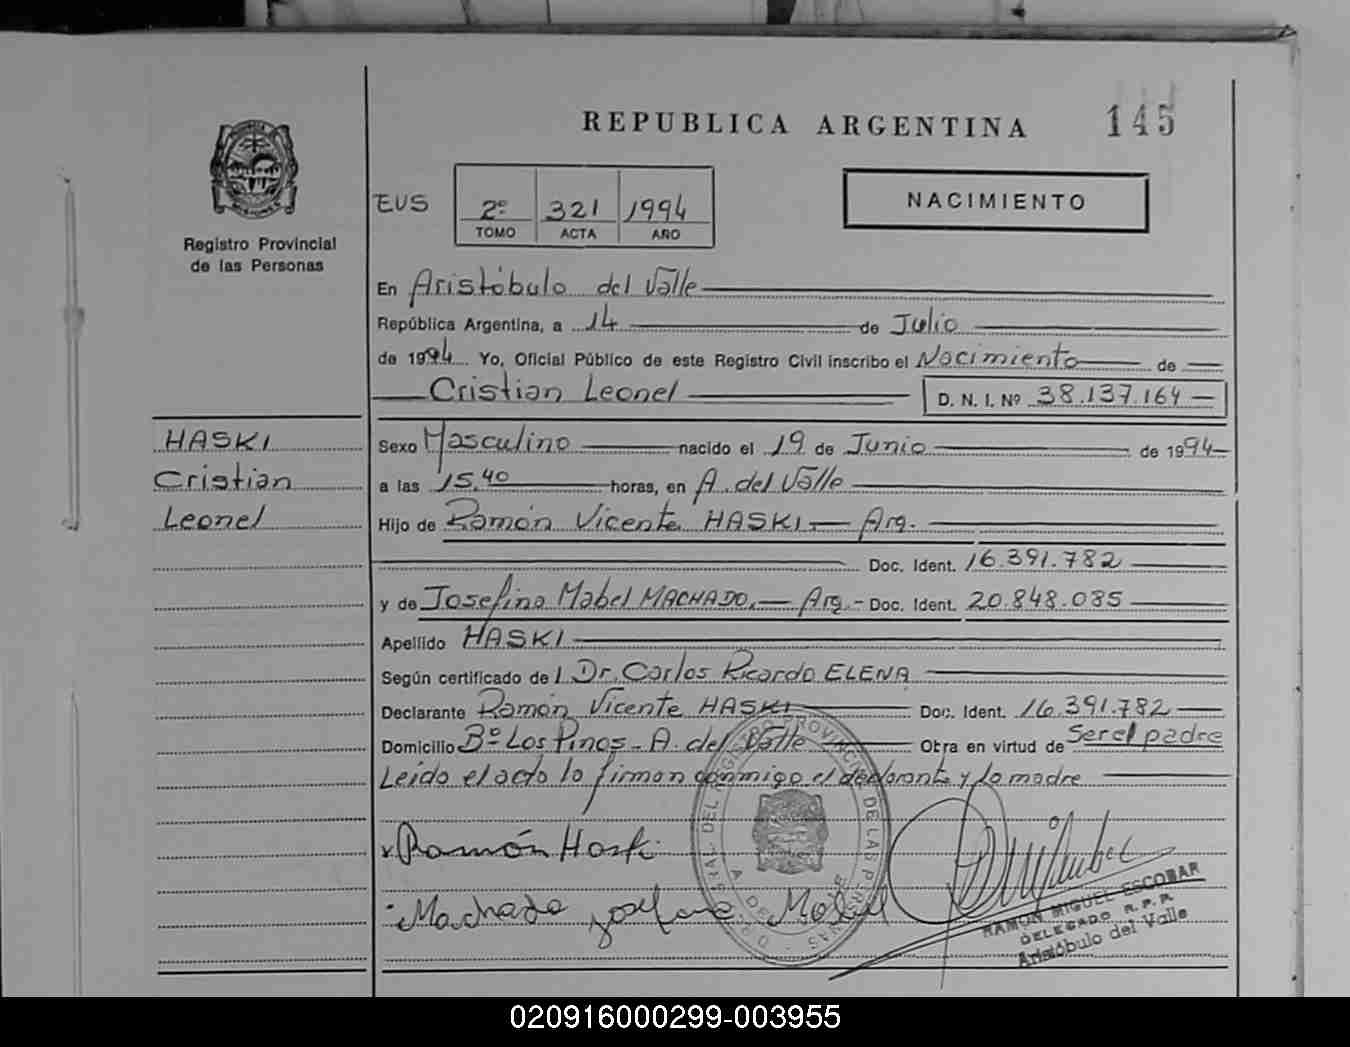 REPUBLICA ARGENTINA
145
Registro Provincial
de las Personas
EUS
2º 321 1994
TOMO ACTA AÑO
NACIMIENTO
En Aristóbulo del Valle
República Argentina, a 14 de Julio
de 1994 Yo, Oficial Público de este Registro Civil inscribo el Nacimiento de
Cristian Leonel
D. N. I. Nº 38.137.164
HASKI
Cristian
Leonel
Sexo Masculino nacido el 19 de Junio de 1994
a las 15.40 horas, en A. del Valle
Hijo de Ramón Vicente HASKI.— Arg.
Doc. Ident. 16.391.782
y de Josefina Mabel MACHADO.— Arg.- Doc. Ident. 20.848.085
Apellido HASKI
Según certificado del Dr. Carlos Ricardo ELENA
Declarante Ramón Vicente HASKI Doc. Ident. 16.391.782
Domicilio Bº Los Pinos - A. del Valle Obra en virtud de Ser el padre
Leído el acto lo firman conmigo el declarante y la madre
Ramón Haski
Machado Josefina Mabel
RAMON MIGUEL ESCOBAR
DELEGADO R.P.P.
Aristóbulo del Valle
020916000299-003955